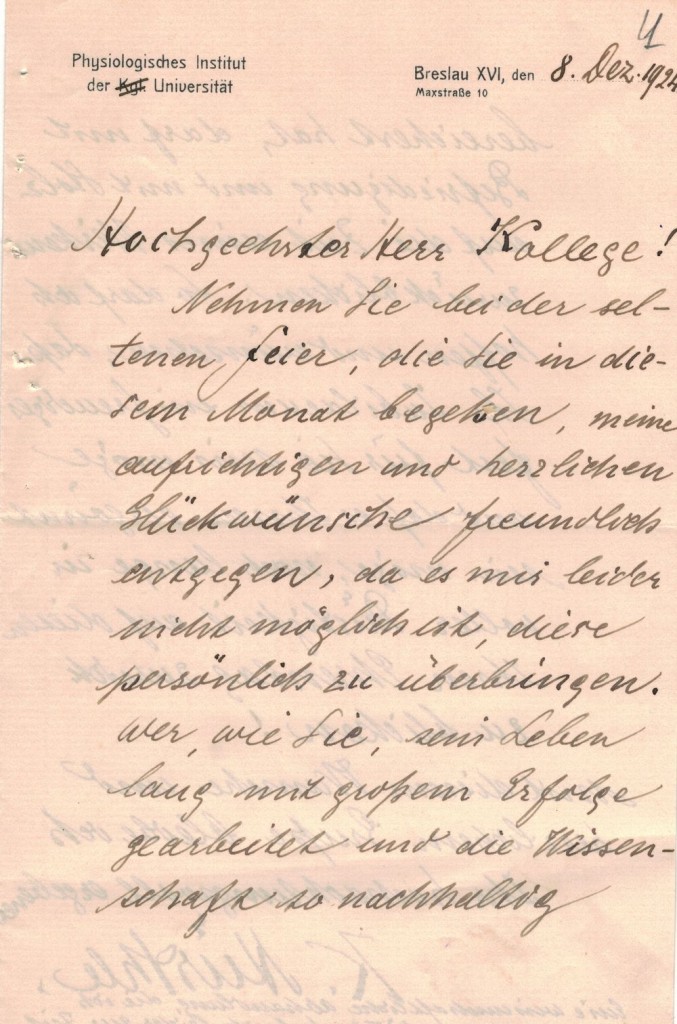 4
Physiologisches Institut
der Kgl. Universität
Breslau XVI, den 8. Dez. 1924
Maxstraße 10
Hochgeehrter Herr Kollege!
Nehmen Sie bei der sel-
tenen Feier, die Sie in die-
sem Monat begehen, meine
aufrichtigen und herzlichen
Glückwünsche freundlich
entgegen, da es mir leider
nicht möglich ist, diese
persönlich zu überbringen.
Wer, wie Sie, sein Leben
lang mit großem Erfolge
gearbeitet und die Wissen-
schaft so nachhaltig